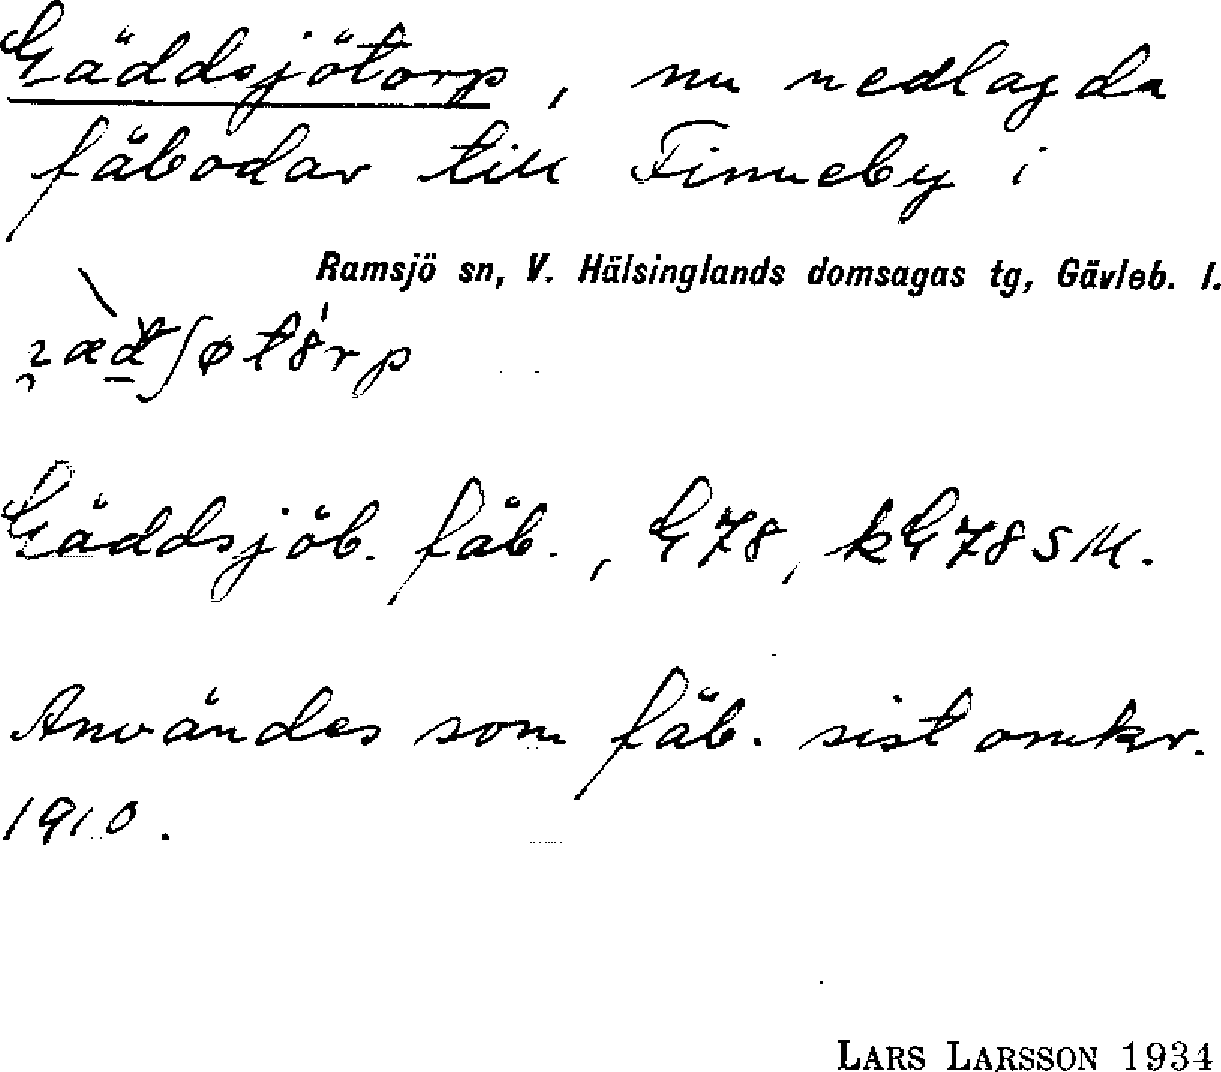 Gäddsjötorp, nu nedlagda
fäbodar till Finneby i
Ramsjö sn, V. Hälsinglands domsagas tg, Gävleb. l.
Gäddsjöb. fäb., G78, kG78SM.
Användes som fäb. sist omkr.
1910.
LARS LARSSON 1934